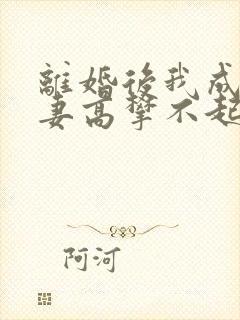 離婚後我成
妻高攀不起
阿河